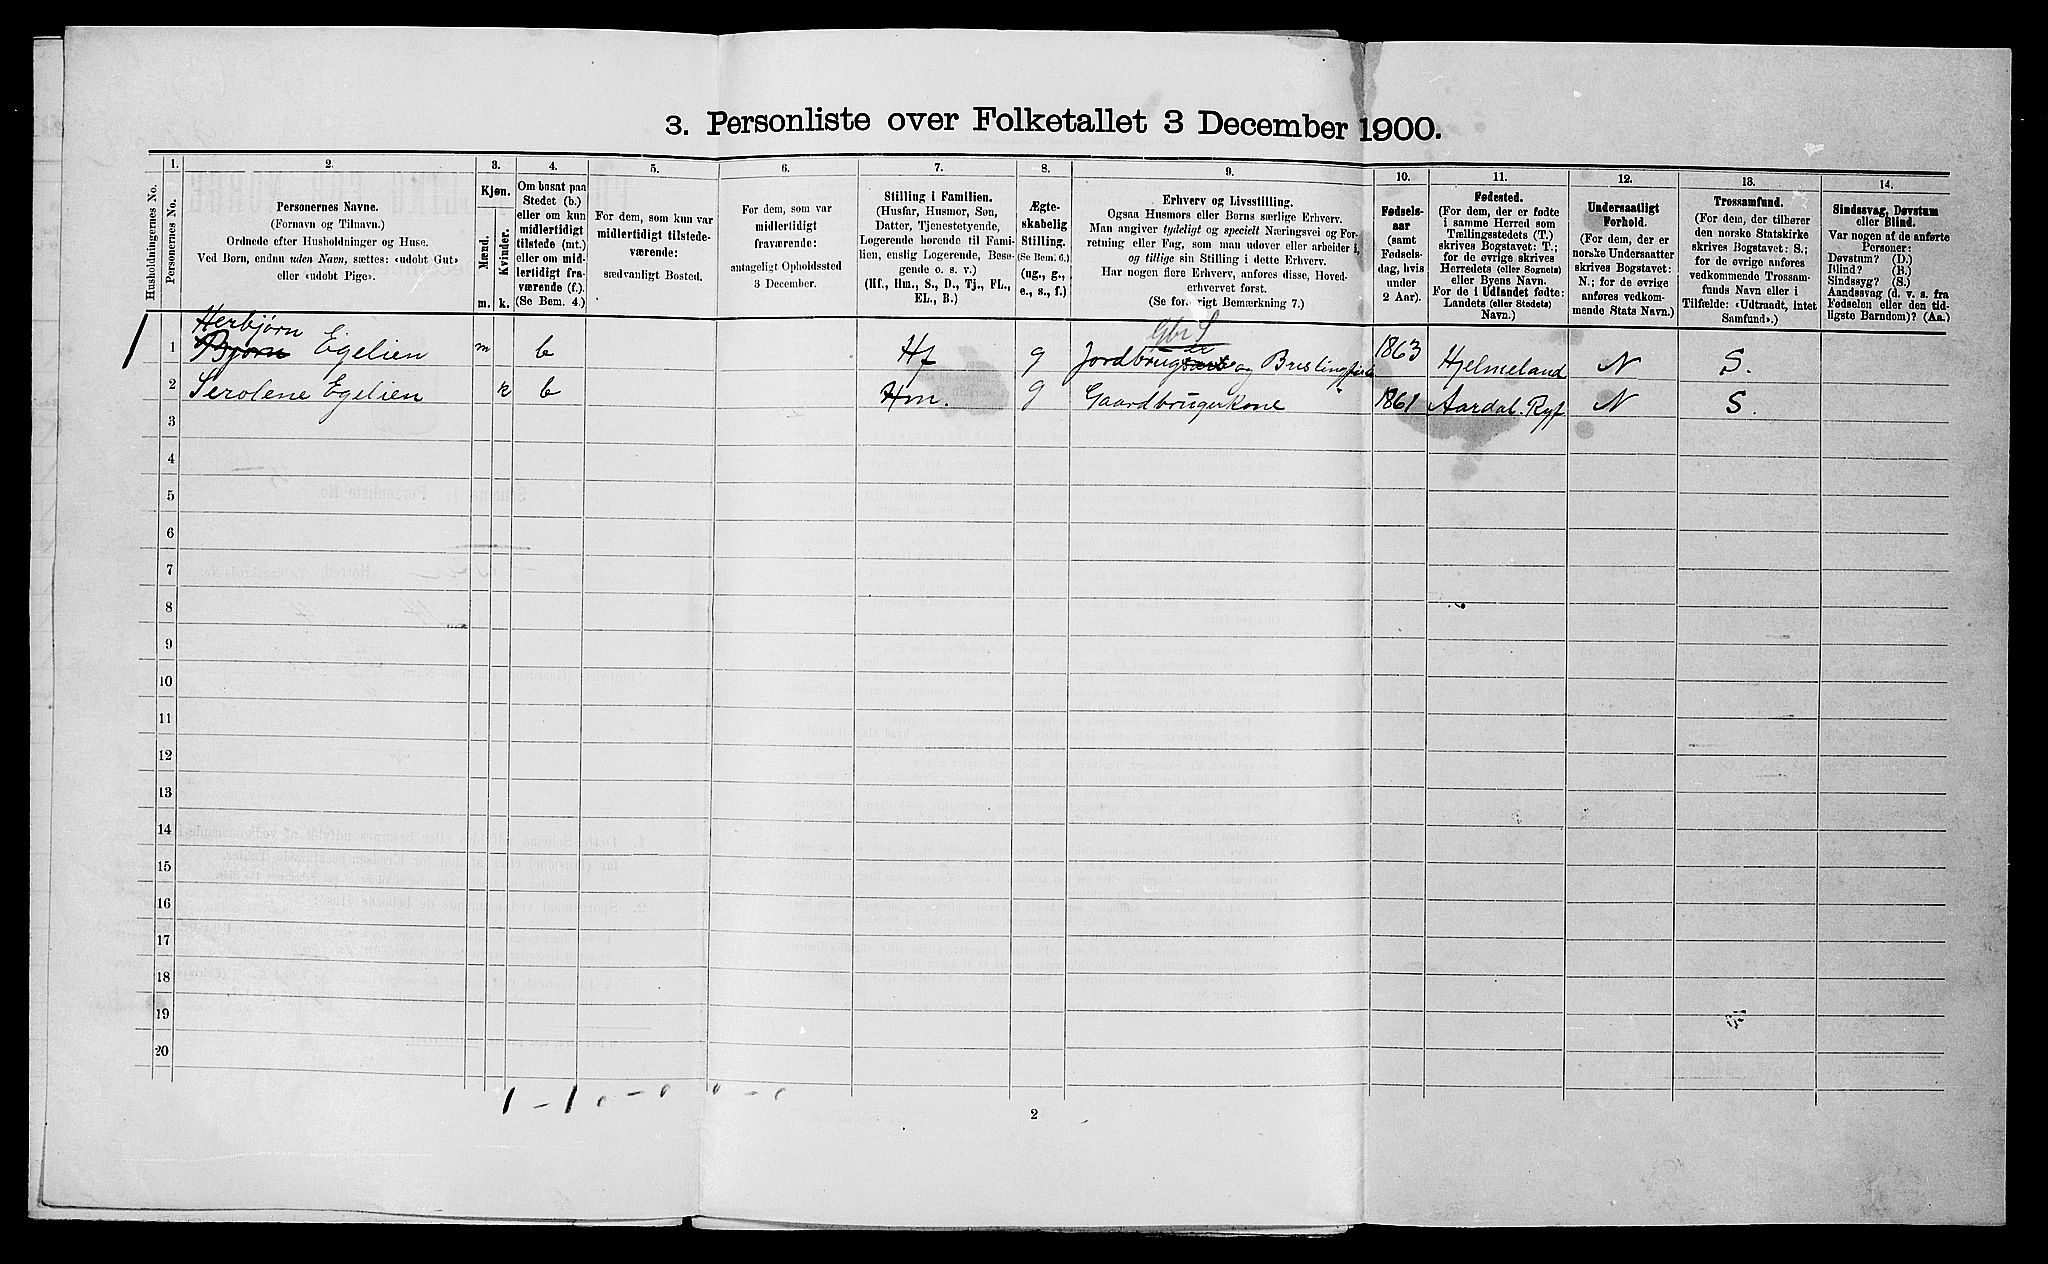 3. Personliste over Folketallet 3 December 1900.
Husholdningernes No.
1.
Personernes No.
2.
Personernes Navne.
(Fornavn og Tilnavn.)
Ordnede efter Husholdninger og Huse.
Ved Børn, endnu uden Navn, sættes: «udøbt Gut»
eller «udøbt Pige».
3.
Kjøn.
Mænd.
Kvinder.
m. k.
4.
Om bosat paa
Stedet (b.)
eller om kun
midlertidigt
tilstede (mt.)
eller om mid-
lertidigt fra-
værende (f.).
(Se Bem. 4.)
5.
For dem, som kun var
midlertidigt tilstede-
værende:
sædvanligt Bosted.
6.
For dem, som var
midlertidigt
fraværende:
antageligt Opholdssted
3 December.
7.
Stilling i Familien.
(Husfar, Husmor, Søn,
Datter, Tjenestetyende,
Logerende hørende til Fami-
lien, enslig Logerende, Besø-
gende o. s. v.)
(Hf., Hm., S., D., Tj., FL.,
EL., B.)
8.
Ægte-
skabelig
Stilling.
(Se Bem. 6.)
(ug., g.,
e., s., f.)
9.
Erhverv og Livsstilling.
Ogsaa Husmors eller Børns særlige Erhverv.
Man angiver tydeligt og specielt Næringsvei og For-
retning eller Fag, som man udøver eller arbeider i,
og tillige sin Stilling i dette Erhverv.
Har nogen flere Erhverv, anføres disse, Hoved-
erhvervet først.
(Se forøvrigt Bemærkning 7.)
10.
Fødsels-
aar
(samt
Fødsels-
dag, hvis
under
2 Aar).
11.
Fødested.
(For dem, der er fødte
i samme Herred som
Tællingsstedets (T.)
skrives Bogstavet: T.;
for de øvrige skrives
Herredets (eller Sognets)
eller Byens Navn.
For de i Udlandet fødte:
Landets (eller Stedets)
Navn.)
12.
Undersaatligt
Forhold.
(For dem, der er
norske Undersaatter
skrives Bogstavet:
N.; for de øvrige
anføres vedkom-
mende Stats Navn.)
13.
Trossamfund.
(For dem, der tilhører
den norske Statskirke
skrives Bogstavet: S.;
for de øvrige anføres
vedkommende Trossam-
funds Navn eller i
Tilfælde: «Udtraadt, intet
Samfund».)
14.
Sindssvag, Døvstum
eller Blind.
Var nogen af de anførte
Personer:
Døvstum? (D.)
Blind? (B.)
Sindssyg? (S.)
Aandssvag (d. v. s. fra
Fødselen eller den tid-
ligste Barndom)? (Aa.)
Herbjørn Gbr S
1 1 Bjørn Egelien m b Hf g Jordbruger og Brislingfisk 1863 Hjelmeland N S.
2 Serolene Egelien k b Hm. g Gaardbrugerkone " 1861 Aardal. Ryf N S.
3
4
5
6
7
8
9
10
11
12
13
14
15
16
17
18
19
20
1 - 1 0 - 0 0 - 0
2